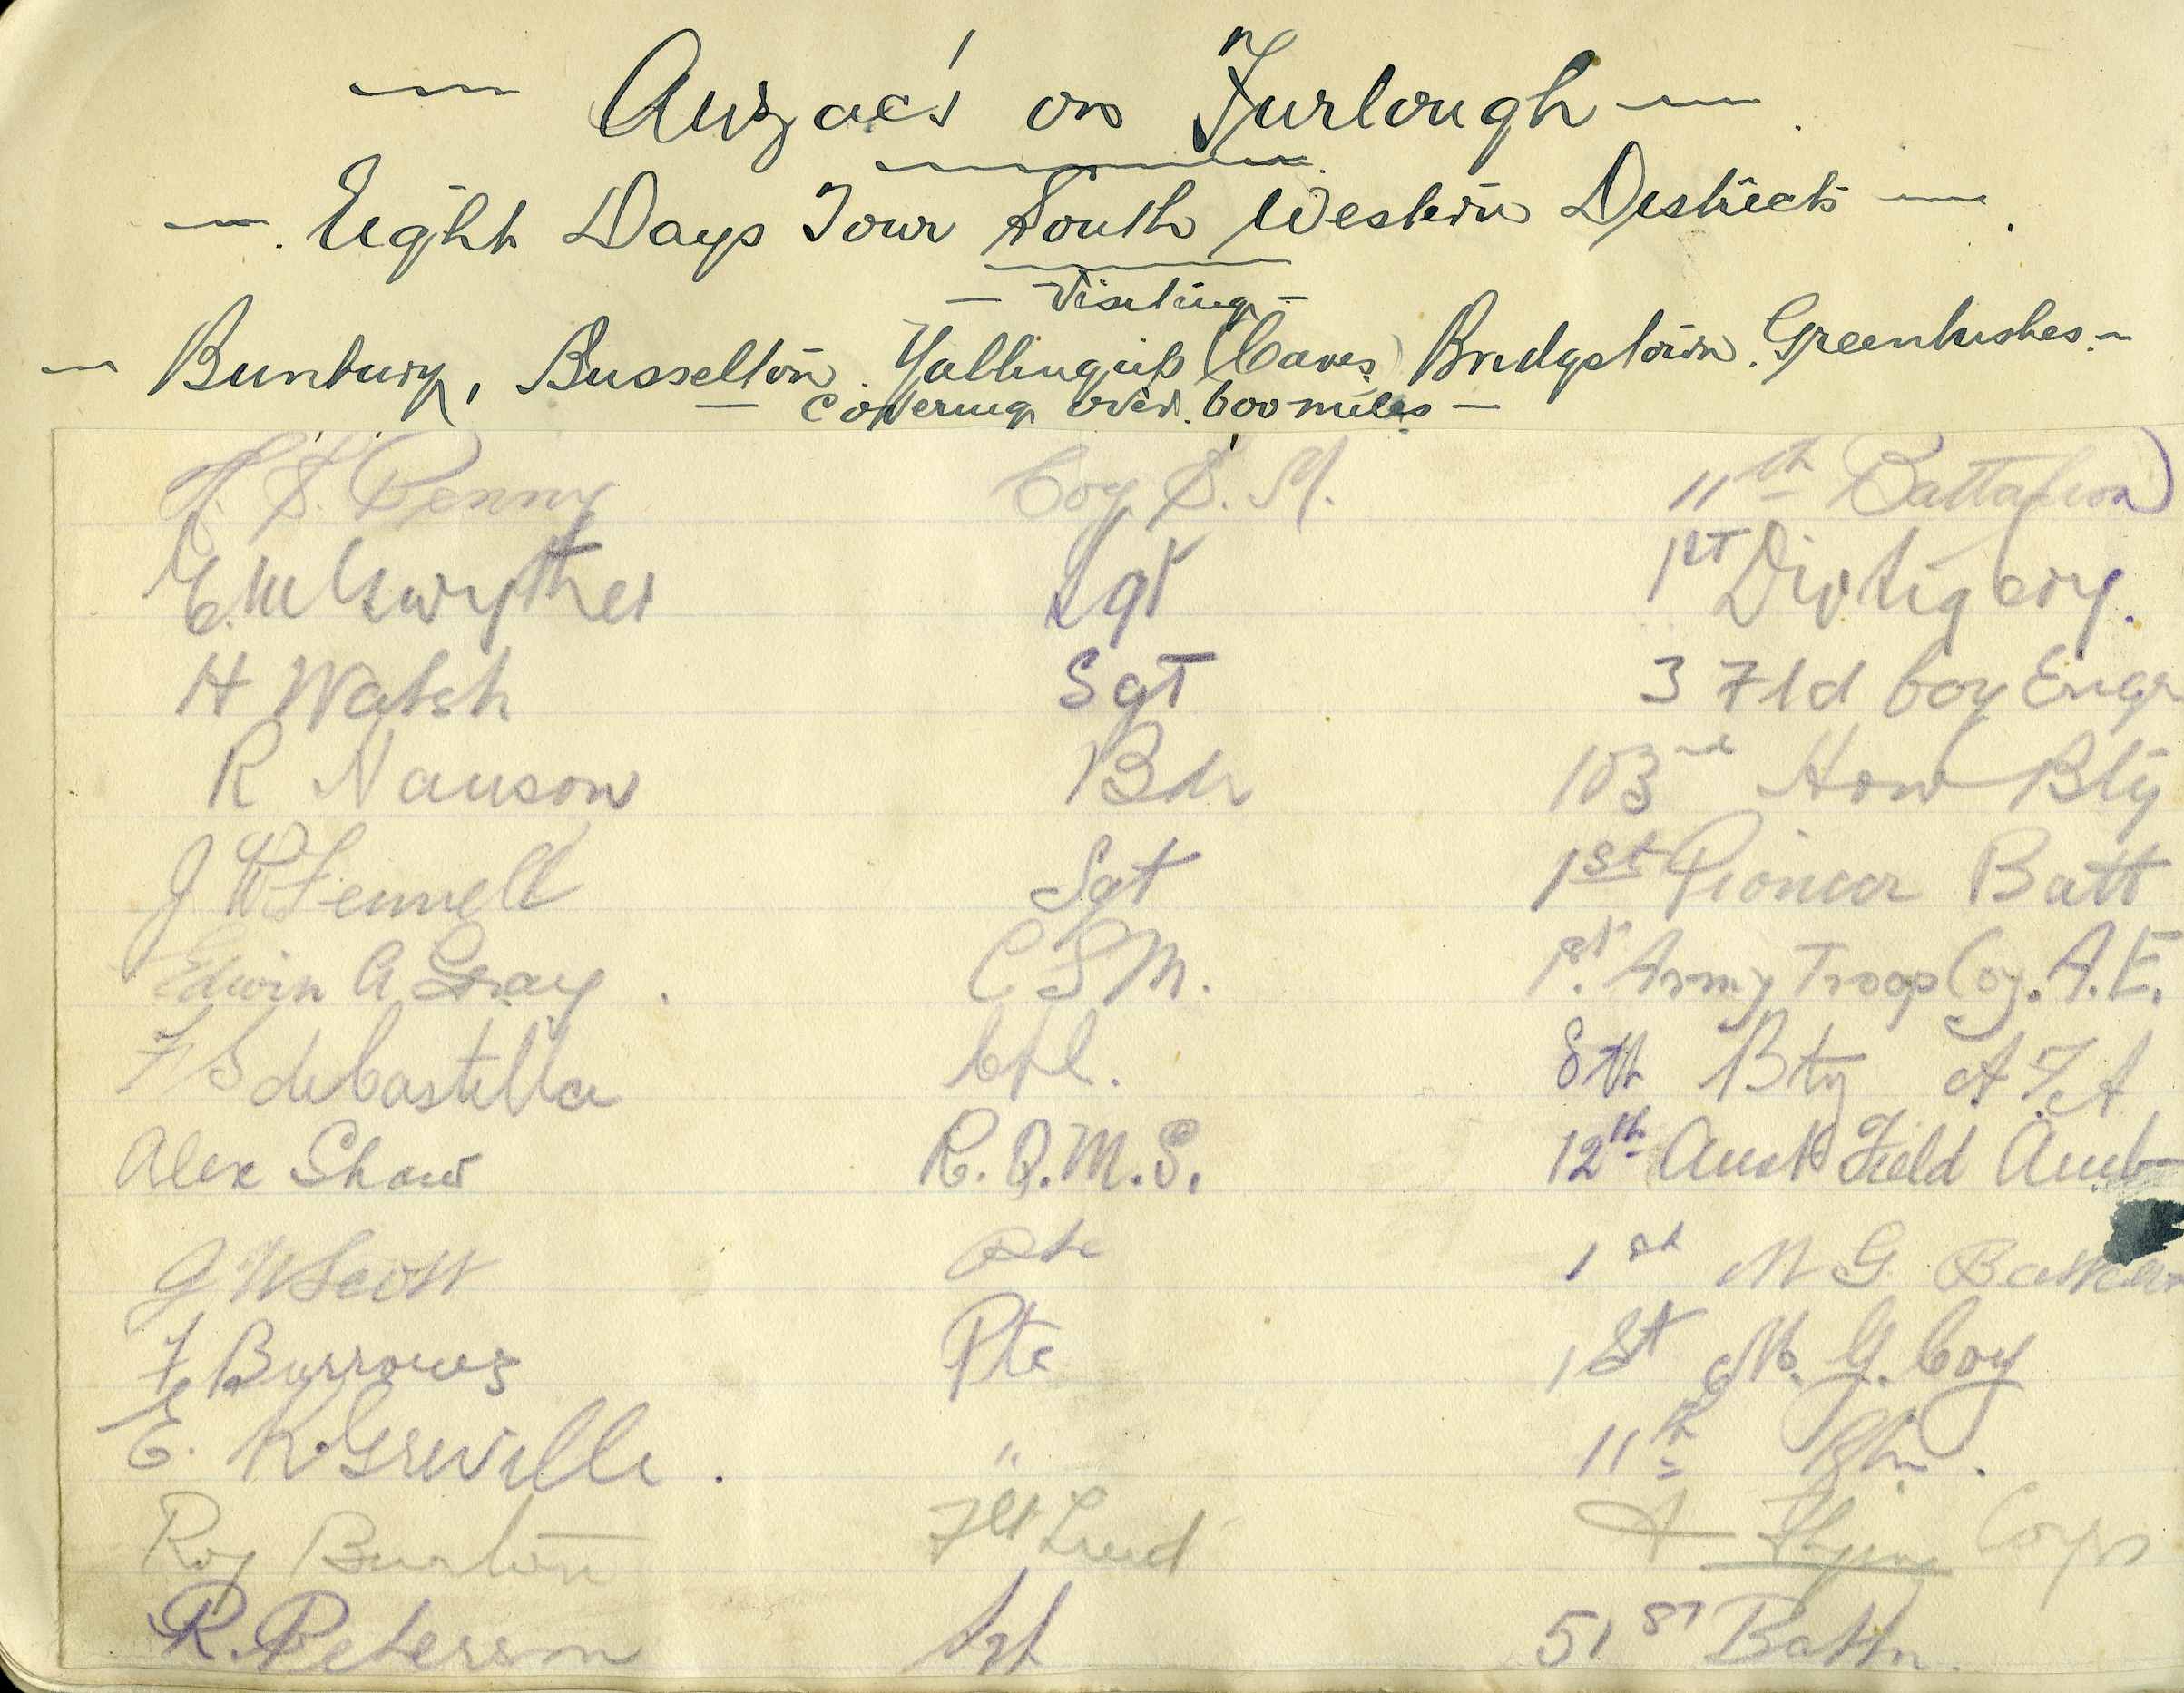 Anzac's on Furlough
Eight Days Tour South Western Districts
Visiting
Bunbury, Busselton. Yallingup (Caves) Bridgetown. Greenbushes.
covering over 600 miles
H. S. Penny Coy S. M. 11th Battalion
E. M Gwyther Sgt 1st Div Sig Coy.
H Walsh Sgt 3 Fld Coy Engr
R Nauson Bdr 103rd How Bty
J W Fennell Sgt 1st Pioneer Batt
Edwin A Gray. C S M. 1st. Army Troop Coy. A. E.
F S de Castella Cpl. 8th Bty A F A
Alex Shaw R. Q. M. S. 12th Aust Field Amb
G W Scott Pte 1st M G Battalion
F Burrows Pte 1st M. G. Coy
E. K Greville. " 11th Bn.
Roy Burton Flt Lieut A Flying Corps
R. Peterson Sgt 51st Battn.